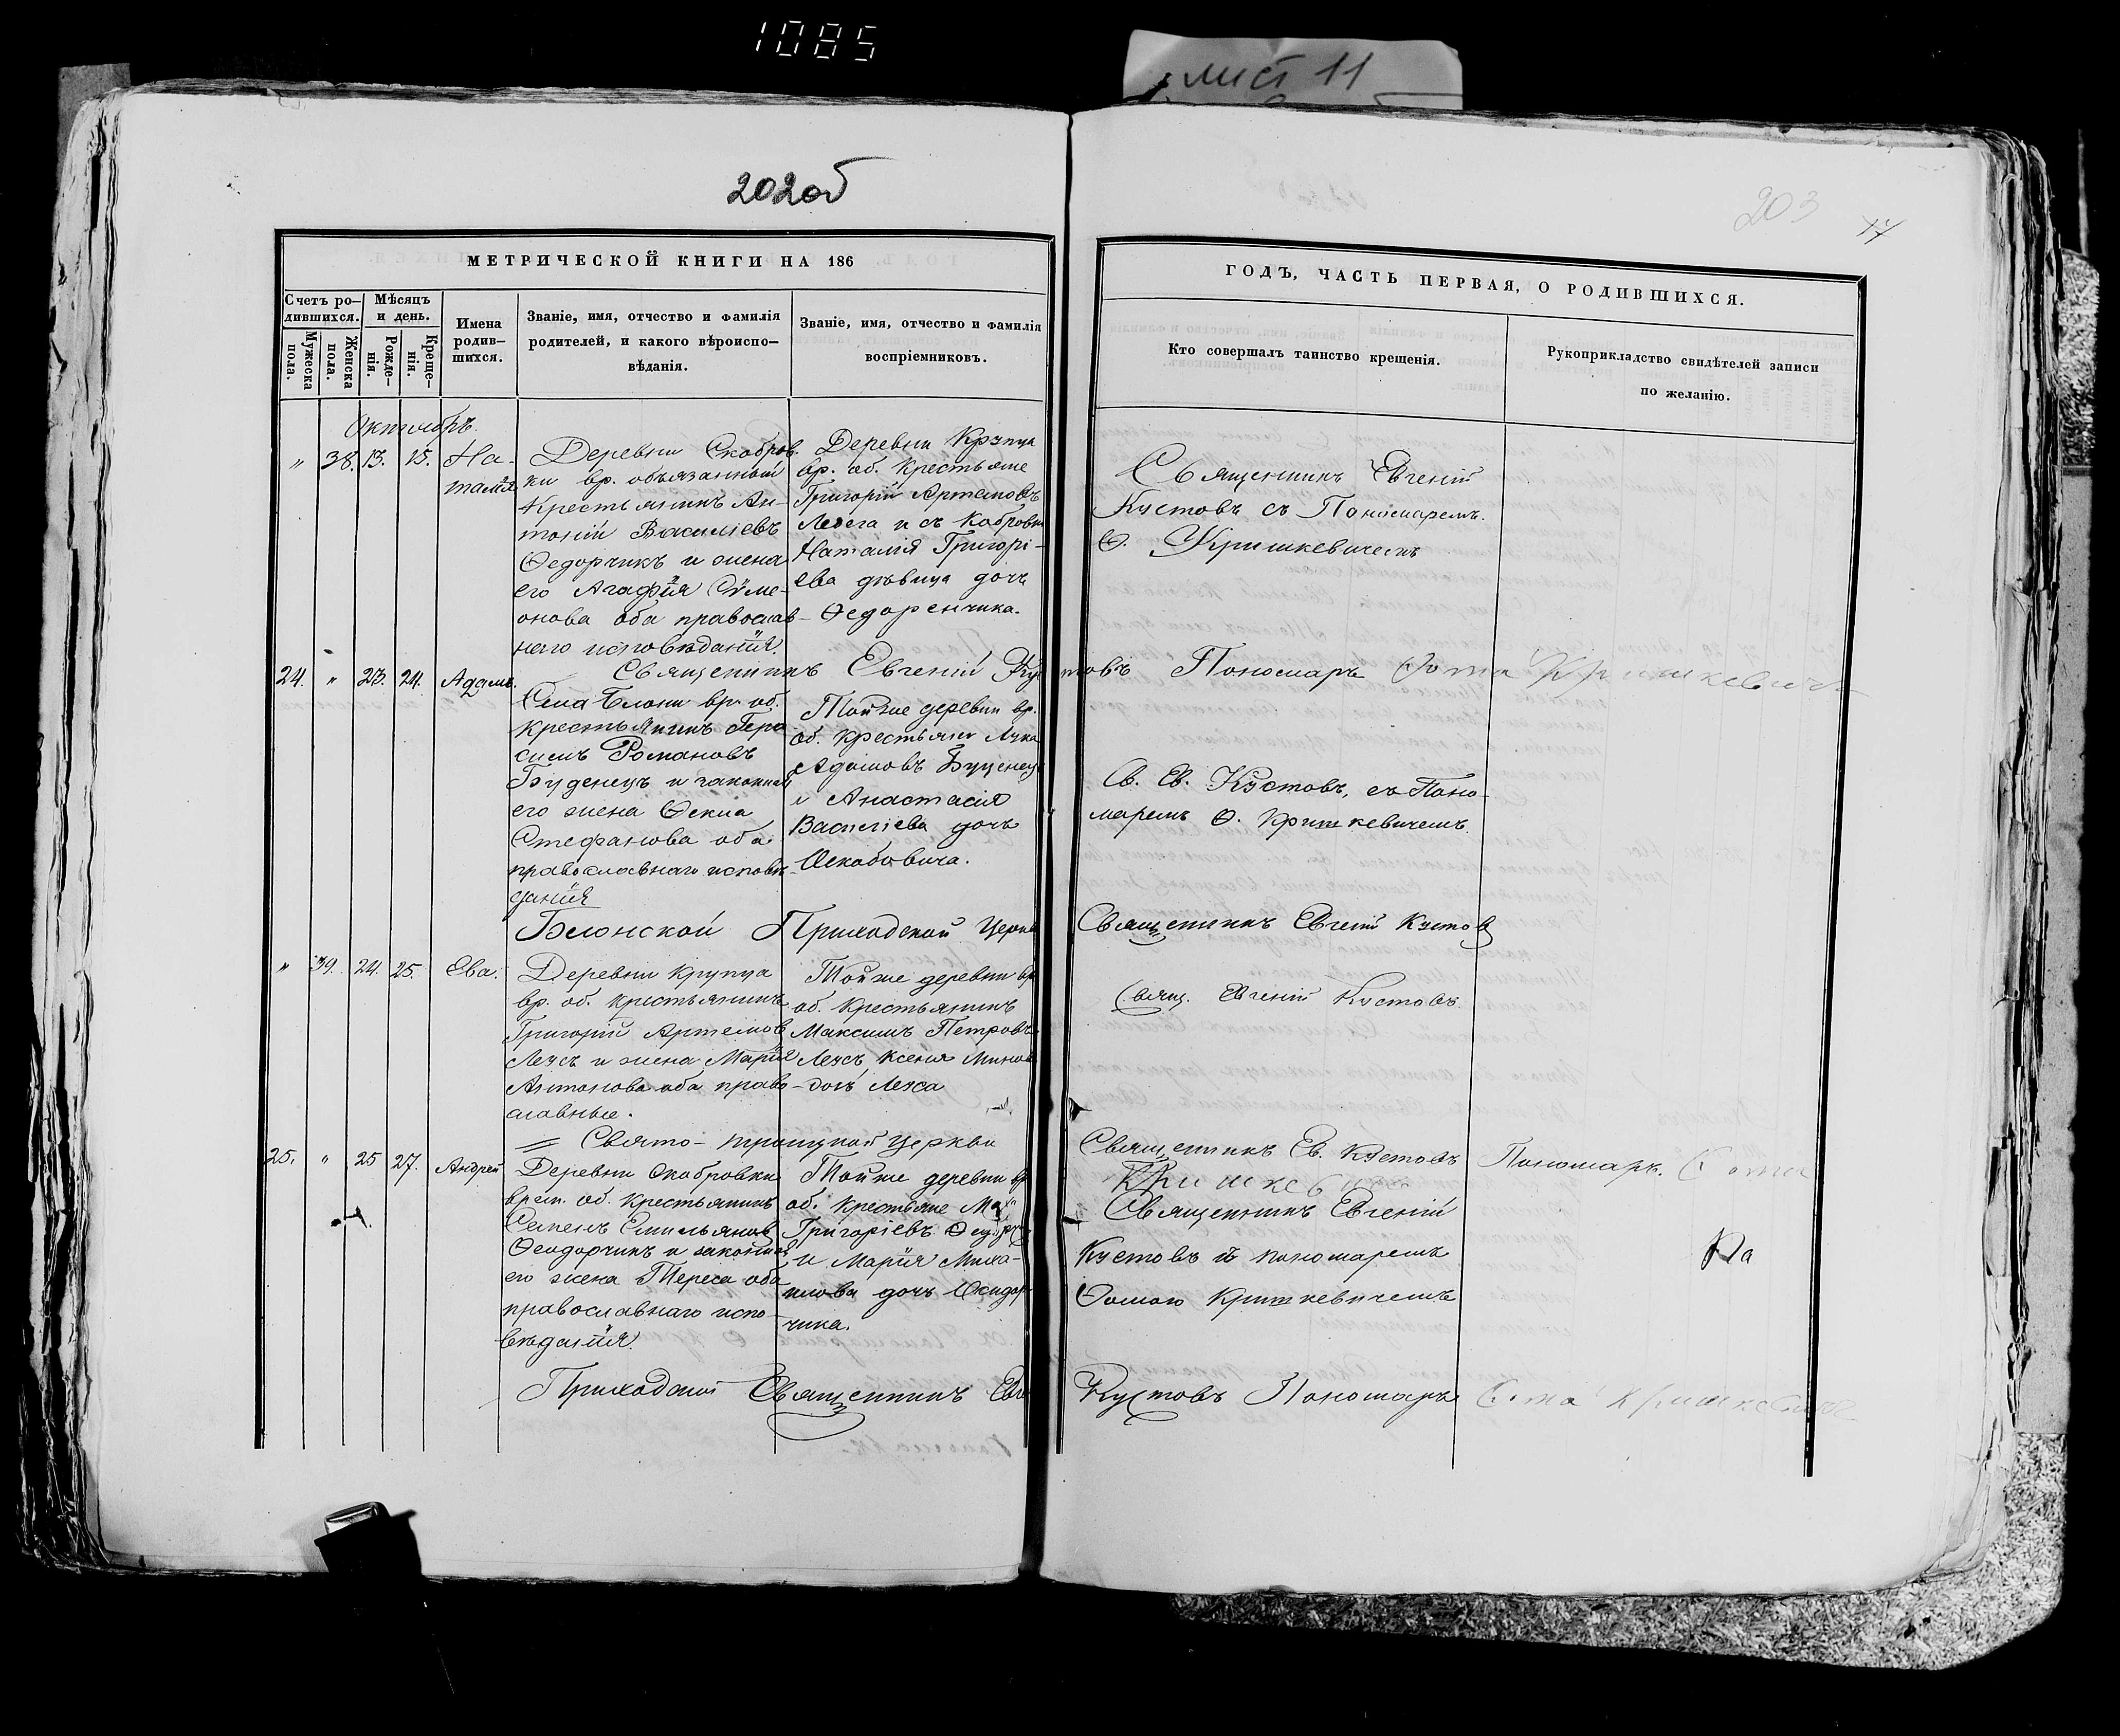 1085
лист 11
202об
203
17
МЕТРИЧЕСКОЙ КНИГИ НА 186
Счетъ ро-
дившихся.
Мужеска
пола.
Женска
пола.
Мѣсяцъ
и день.
Рожде-
нія.
Креще-
нія.
Имена
родив-
шихся.
Званіе, имя, отчество и фамилія
родителей, и какого вѣроиспо-
вѣданія.
Званіе, имя, отчество и фамилія
воспріемниковъ.
ГОДЪ, ЧАСТЬ ПЕРВАЯ, О РОДИВШИХСЯ.
Кто совершалъ таинство крещенія.
Рукоприкладство свидѣтелей записи
по желанію.
Октябрь.
" 38. 13. 15.
На-
талія
Деревни Скобров-
ки вр. обязанный
Крестьянинъ Ан-
тоній Василіевъ
Ѳедорчикъ и жена
его Агафія Симе-
онова оба православ-
наго исповѣданія.
Деревни Крупца
вр. об. Крестьяне
Григорій Артемовъ
и съ
Наталія Григорі-
ева дѣвица дочь
Ѳедоренчика.
Священникъ Евгеній
Кустовъ съ Пономаремъ
Ѳ. Кришкевичемъ
Священникъ Евгеній Кустовъ Пономарь Ѳома Кришкевичъ
24. " 23. 24. Адамъ.
Села Блони вр. об.
Крестьянинъ Гера-
симъ Романовъ
Буденецъ и законная
его жена Ѳекла
Стефанова оба
православнаго исповѣ-
данія
Той же деревни вр.
об. крестьяне Лука
Адамовъ Буденецъ
и Анастасія
Василіева дочь
Св. Ев. Кустовъ, съ Поно-
маремъ Ѳ. Кришкевичемъ.
Блонской Приходской Церкви Священникъ Евгеній Кустовъ
" 39. 24. 25. Ева.
Деревни Крупца
вр. об. крестьянинъ
Григорій Артемов
и жена Марія
Антонова оба право-
славные.
Той же деревни вр
об. Крестьянинъ
Максимъ Петровъ
Ксенія
дочь
Свящ. Евгеній Кустовъ.
Свято-Троицкой Церкви Священникъ Ев. Кустовъ Пономарь. Ѳома
Кришкевичъ
25. " 25 27. Андрей
Деревни Скобровки
врем. об. Крестьянинъ
Семенъ Емильянов
Ѳеодорчикъ и законная
его жена Тереса оба
православнаго испо-
вѣданія.
Той же деревни вр
об. Крестьяне
Григоріевъ
и Марія Миха-
илова дочь
чика.
Священникъ Евгеній
Кустовъ и пономаремъ
Ѳомою Кришкевичемъ
Приходской Священникъ Евг Кустовъ Пономарь Ѳома Кришкевичъ